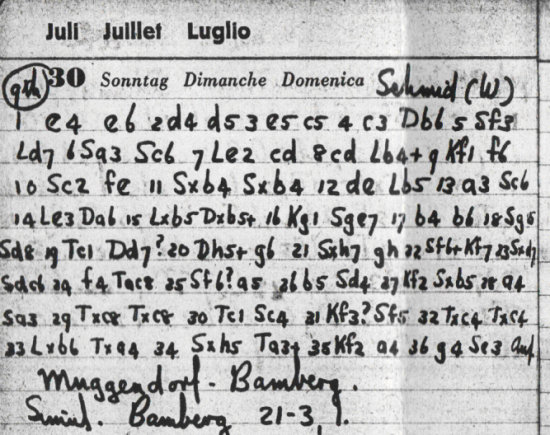 Juli Juillet Luglio
9th 30 Sonntag Dimanche Domenica Schmid (W)
1 e4 e6 2 d4 d5 3 e5 c5 4 c3 Db6 5 Sf3
Ld7 6 Sa3 Sc6 7 Le2 cd 8 cd Lb4+ 9 Kf1 f6
10 Sc2 fe 11 Sxb4 Sxb4 12 de Lb5 13 a3 Sc6
14 Le3 Da6 15 Lxb5 Dxb5+ 16 Kg1 Sge7 17 b4 b6 18 Sg5
Sd8 19 Tc1 Dd7? 20 Dh5+ g6 21 Sxh7 gh 22 Sf6+ Kf7 23 Sxd7
Sdc6 24 f4 Tac8 25 Sf6? a5 26 b5 Sd4 27 Kf2 Sxb5 28 a4
Sa3 29 Txc8 Txc8 30 Tc1 Sc4 31 Kf3? Sf5 32 Txc4 Txc4
33 Lxb6 Txa4 34 Sxh5 Ta3+ 35 Kf2 a4 36 g4 Se3 Auf
Muggendorf - Bamberg.
Simul. Bamberg 21-3,